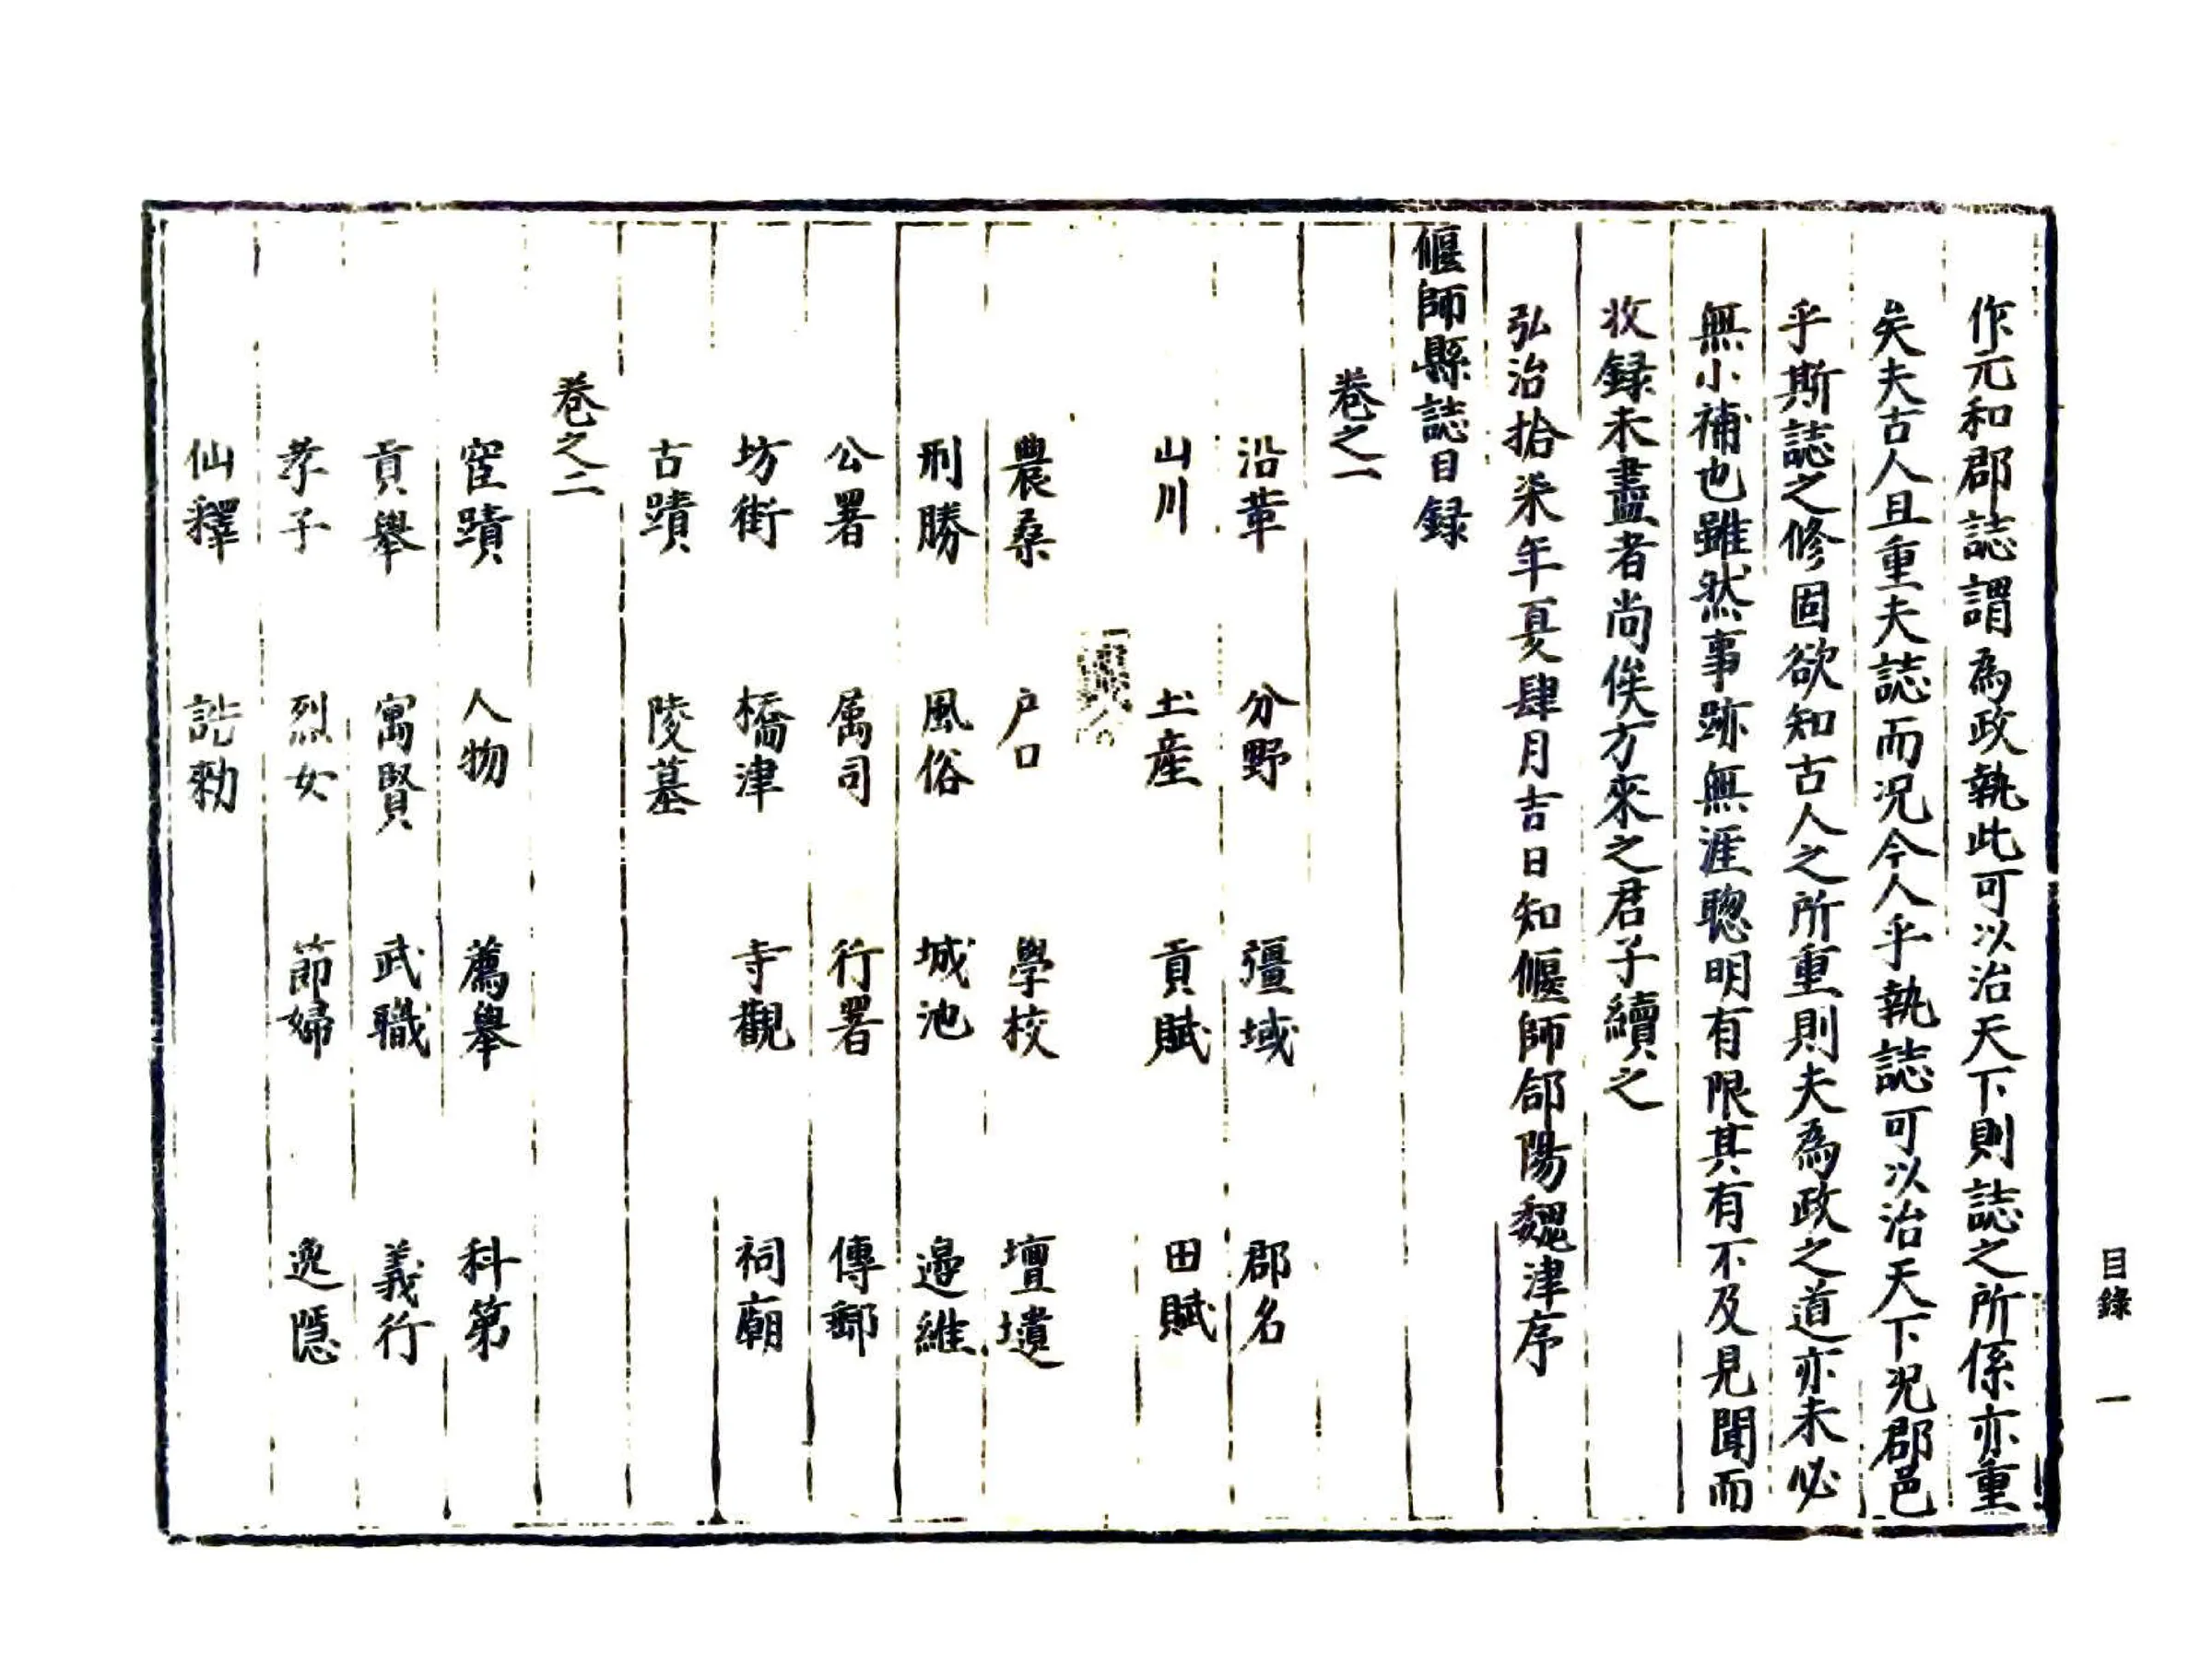 作元和郡誌謂為政執此可以治天下則誌之所係亦重
矣夫古人且重夫誌而況今人乎執誌可以治天下況郡邑
乎斯誌之修固欲知古人之所重則夫為政之道亦未必
無小補也雖然事跡無涯聰明有限其有不及見聞而
收録未盡者尚俟方來之君子續之
弘治拾柒年夏肆月吉日知偃師郃陽魏津序
偃師縣誌目録
卷之一
沿革 分野 彊域 郡名
山川 土產 貢賦 田賦
農桑 户口 學校 壇壝
形勝 風俗 城池 邉維
公署 属司 行署 傳郵
坊街 橋津 寺觀 祠廟
古蹟 陵墓
卷之二
宦蹟 人物 薦舉 科第
貢舉 寓賢 武職 義行
孝子 烈女 節婦 逸隱
仙釋 誥勑
目錄 一